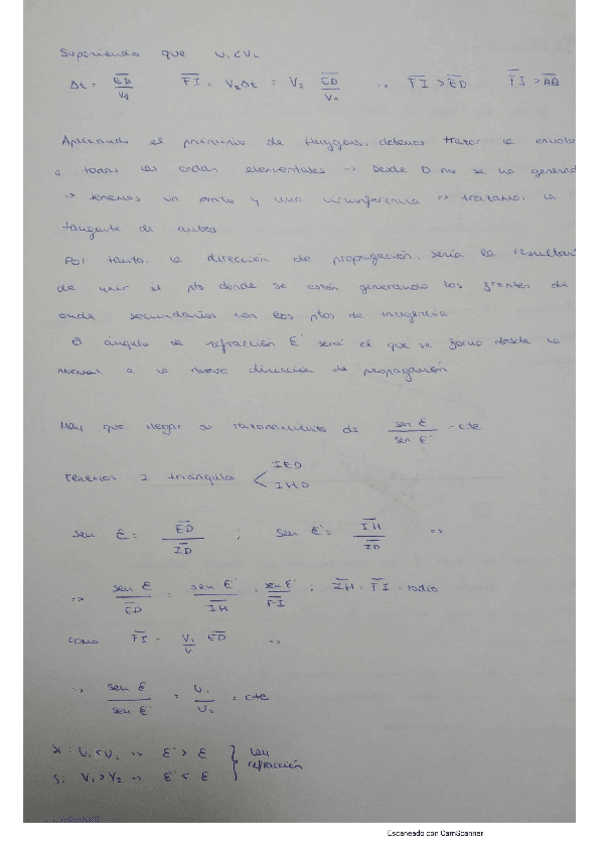 Suponiendo que V₁<V₂
Δt = ED/V₁ FI = V₂Δt = V₂ ED/V₁ => FI > ED FI > AB
Aplicando el principio de Huygens, debemos trazar la envol
a todas las ondas elementales => Desde D no se ha generad
=> tenemos un punto y una circunferencia => trazamos la
tangente de ambos
Por tanto, la dirección de propagación, sería la resultan
de unir el pto donde se están generando los frentes de
onda secundarios con los ptos de tangencia
El ángulo de refracción ε' será el que se forma desde la
normal a la nueva dirección de propagación
Hay que llegar al razonamiento de sen ε / sen ε' = cte
Tenemos 2 triángulo < IED
IHD
sen ε = ED/ID ; sen ε' = IH/ID =>
=> sen ε/ED = sen ε'/IH = sen ε'/FI ; IH = FI = radio
como FI = ED =>
=> sen ε / sen ε' = V₁/V₂ = cte
si V₁<V₂ => ε' > ε } Ley
si V₁>V₂ => ε' < ε } refracción
Escaneado con CamScanner